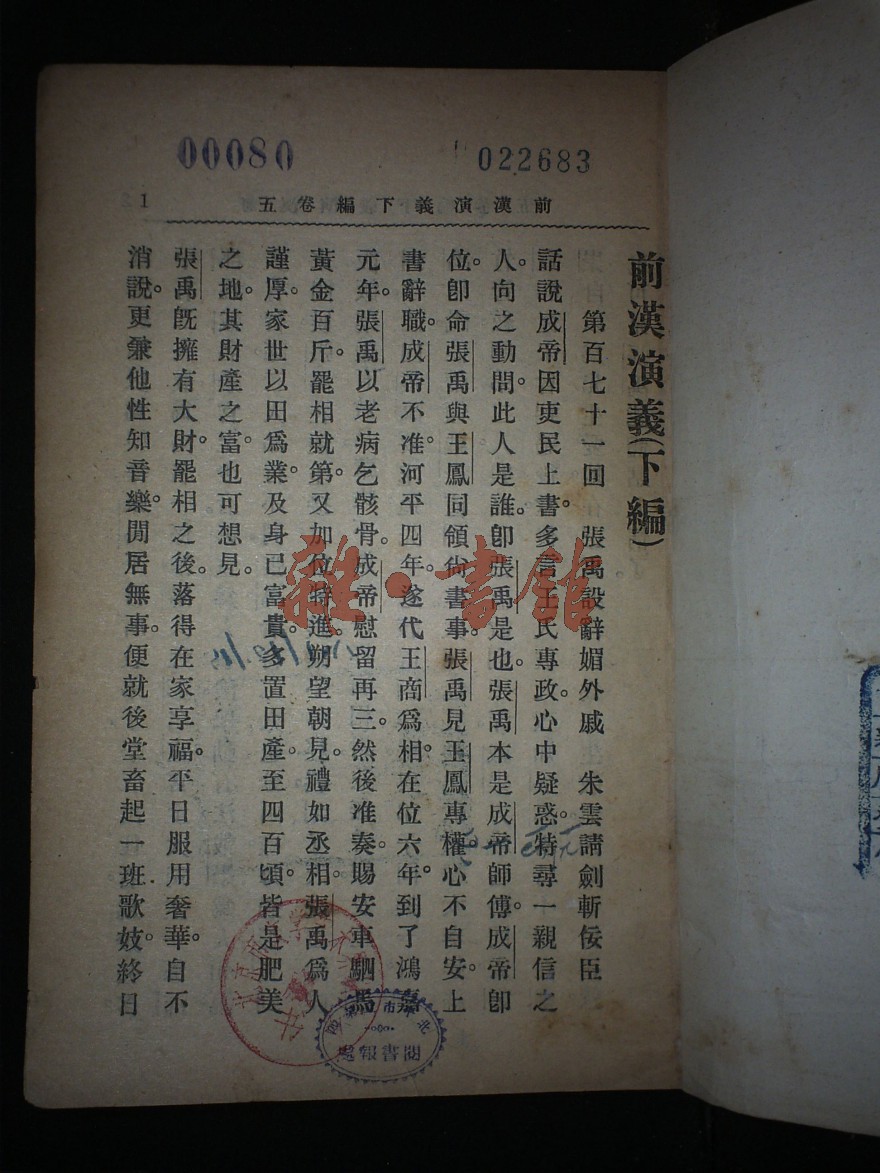 00080
022683
前漢演義下編卷五
1
前漢演義(下編)
第百七十一回 張禹設辭媚外戚 朱雲請劍斬佞臣
話說成帝因吏民上書。多言王氏專政。心中疑惑。特尋一親信之
人。向之動問。此人是誰。卽張禹是也。張禹本是成帝師傅。成帝卽
位。卽命張禹與王鳳同領尙書事。張禹見王鳳專權。心不自安。上
書辭職。成帝不准。河平四年。遂代王商爲相。在位六年。到了鴻嘉
元年。張禹以老病乞骸骨。成帝慰留再三。然後准奏。賜安車駟馬
黃金百斤。罷相就第。又加位特進。朔望朝見。禮如丞相。張禹爲人
謹厚。家世以田爲業。及身已富貴。多置田產。至四百頃。皆是肥美
之地。其財產之富。也可想見。
張禹旣擁有大財。罷相之後。落得在家享福。平日服用奢華。自不
消說。更兼他性知音樂。閒居無事。便就後堂畜起一班歌妓。終日
雜·書館
閱書報處